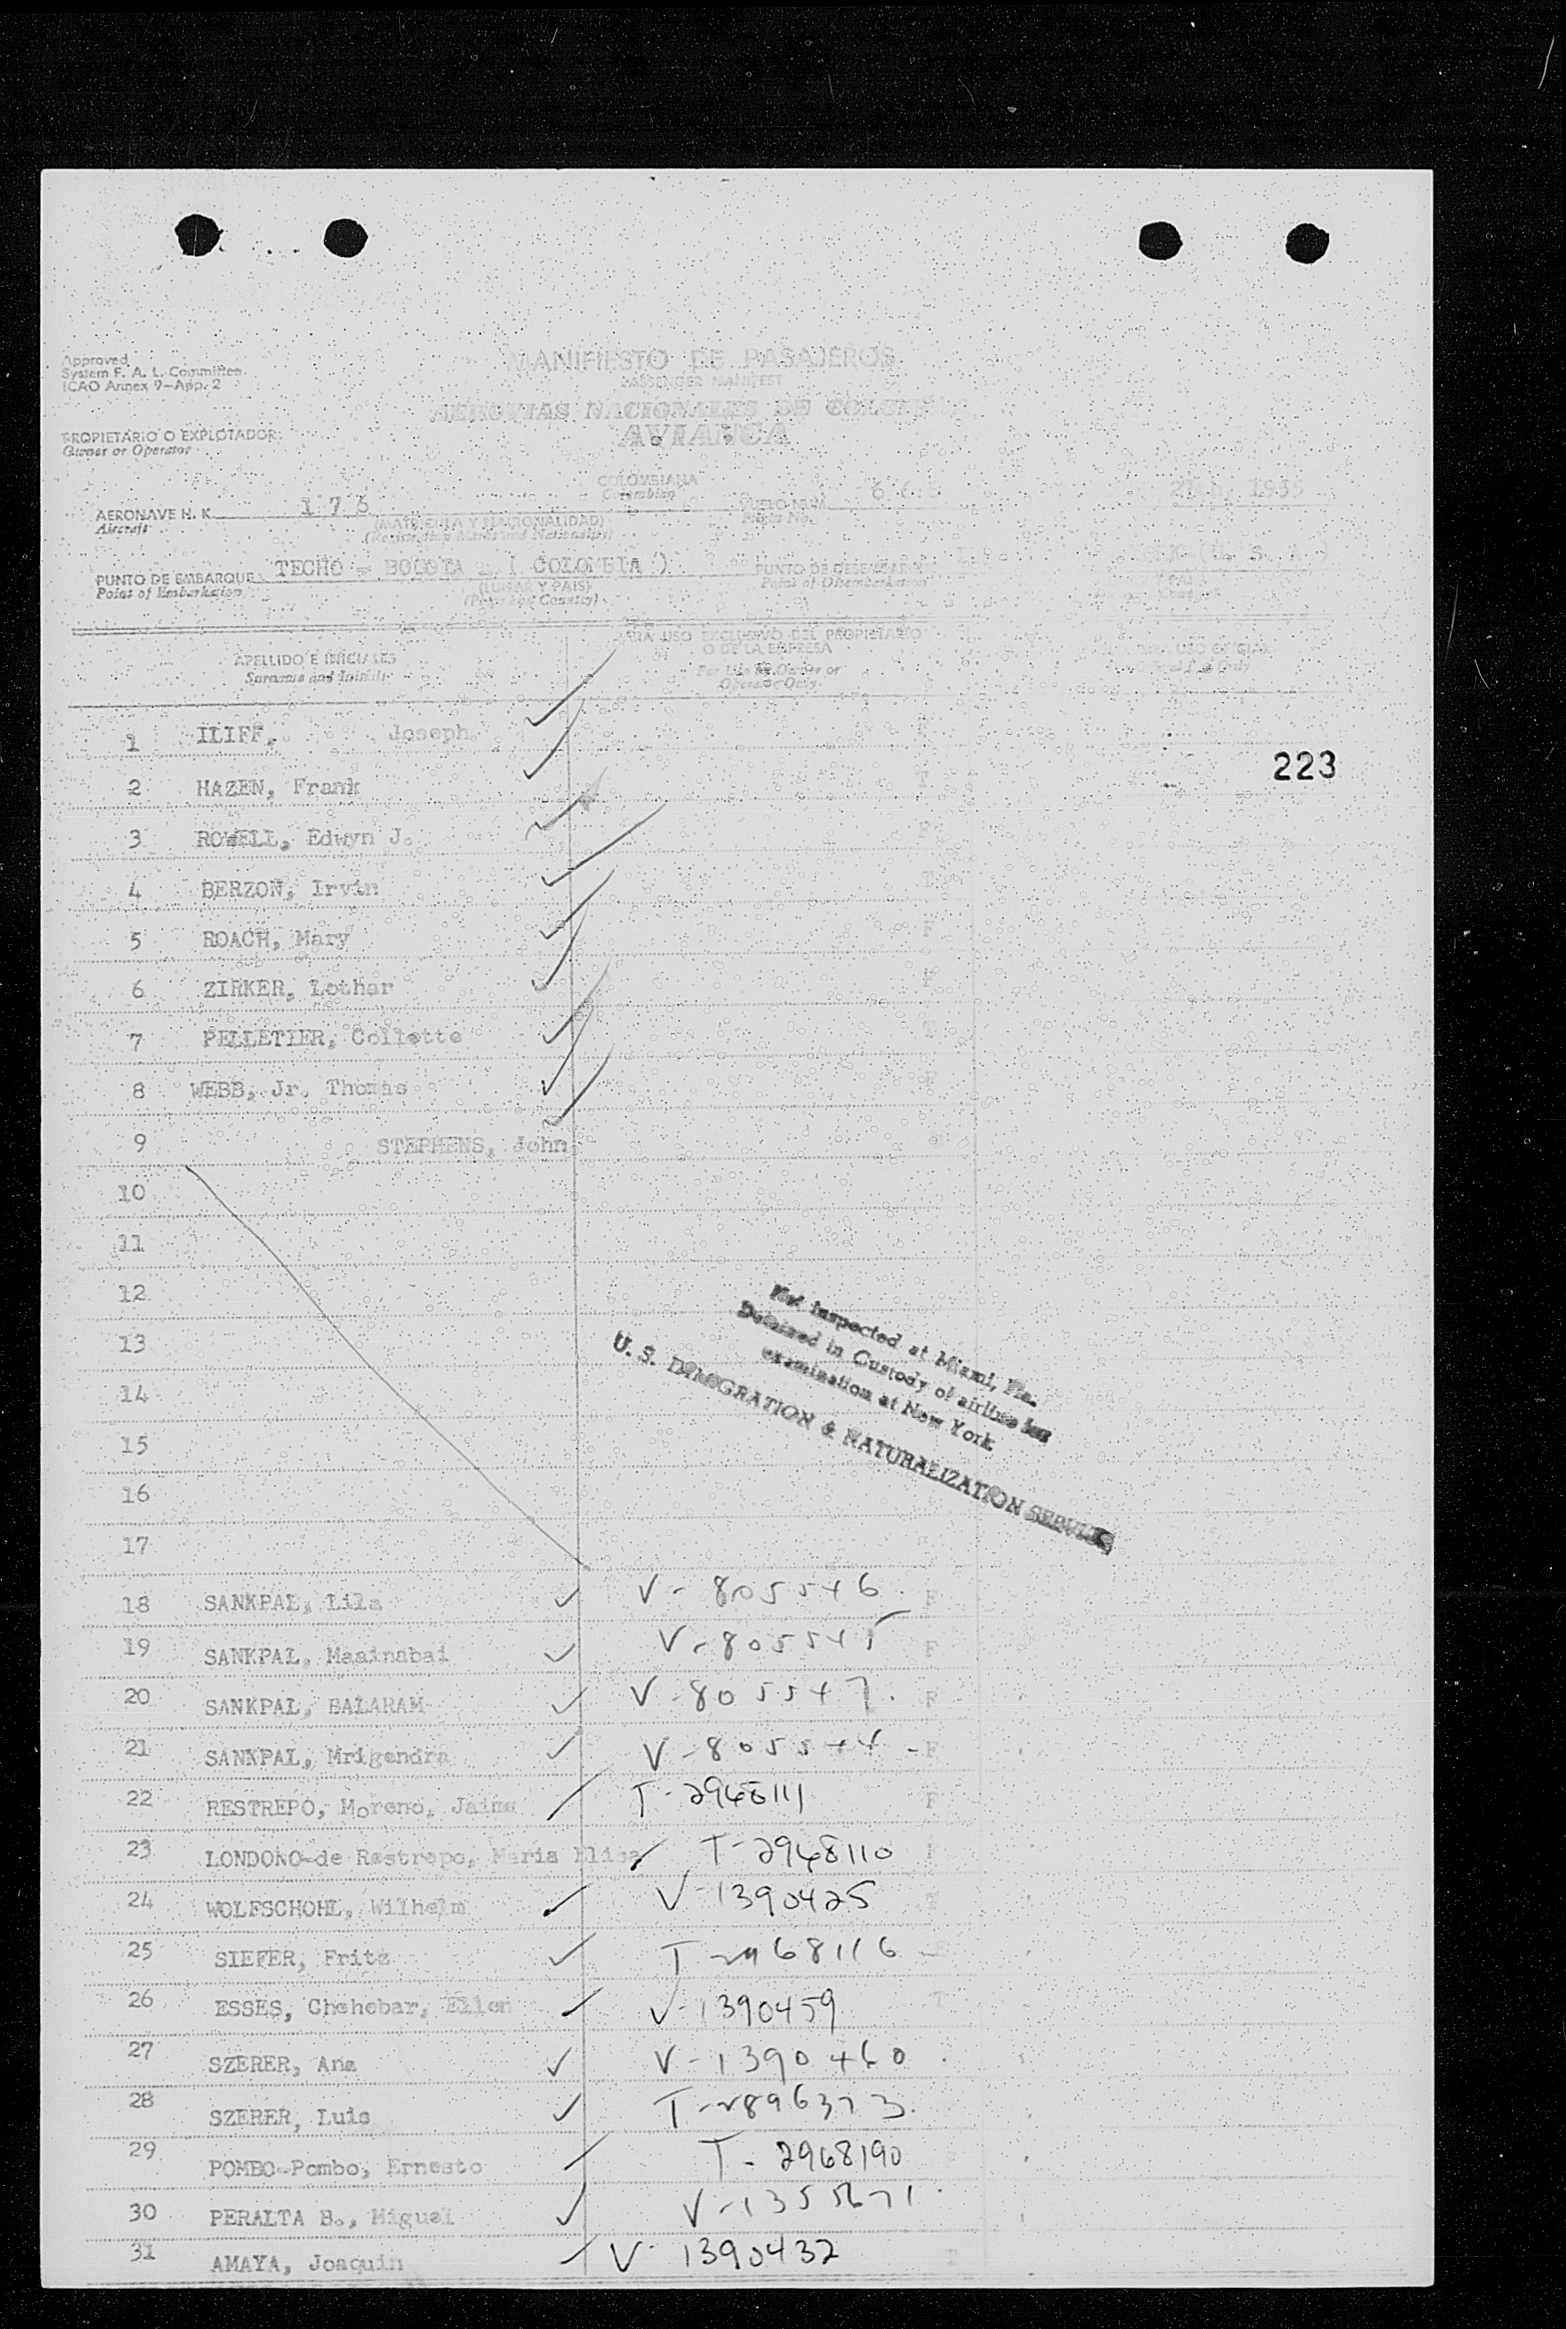 Approved
System F. A. L. Committee
ICAO Annex 9-App. 2
MANIFIESTO DE PASAJEROS
PASSENGER MANIFEST
AEROVIAS NACIONALES DE
AVIANCA
PROPIETARIO O EXPLOTADOR:
Owner or Operator
COLOMBIANA
Colombian
AERONAVE H. K. 176
Aircraft
(MATRICULA Y NACIONALIDAD)
(Registration Marks and Nationality)
VUELO NUM.
Flight No.
PUNTO DE EMBARQUE TECHO - BOGOTA - ( COLOMBIA )
Point of Embarkation
(LUGAR Y PAIS)
(Place and Country)
PUNTO DE
Point of Disembarkation
(U. S. A.)
APELLIDO E INICIALES
Surname and Initials
PARA USO EXCLUSIVO DEL PROPIETARIO
O DE LA EMPRESA
For Use by Owner or
Operator Only
USO OFICIAL
1 ILIFF, Joseph
223
2 HAZEN, Frank
3 ROWELL, Edwyn J.
4 BERZON, Irvin
5 ROACH, Mary F
6 ZIRKER, Lothar F
7 PELLETIER, Collette
8 WEBB, Jr. Thomas
9 STEPHENS, John
10
11
12
13
14
15
16
17
Not inspected at Miami, Fla.
Detained in Custody of airline for
examination at New York
U. S. IMMIGRATION & NATURALIZATION SERVICE
18 SANKPAL, Lila ✓ V-805546. F
19 SANKPAL, Maainabai ✓ V-805545 F
20 SANKPAL, BALARAM ✓ V-805547. F
21 SANKPAL, Mrigendra ✓ V-805544 - F
22 RESTREPO, Moreno, Jaime T-2968111 F
23 LONDONO-de Restrepo, Maria Elisa ✓ T-2968110
24 WOLFSCHOHL, Wilhelm ✓ V-1390425
25 SIEFER, Fritz ✓ T-2968116
26 ESSES, Chehebar, Ellen ✓ V-1390459
27 SZERER, Ana ✓ V-1390460.
28 SZERER, Luis ✓ T-2896373.
29 POMBO-Pombo, Ernesto T-2968190
30 PERALTA B., Miguel ✓ V-1355671.
31 AMAYA, Joaquin ✓ V-1390432